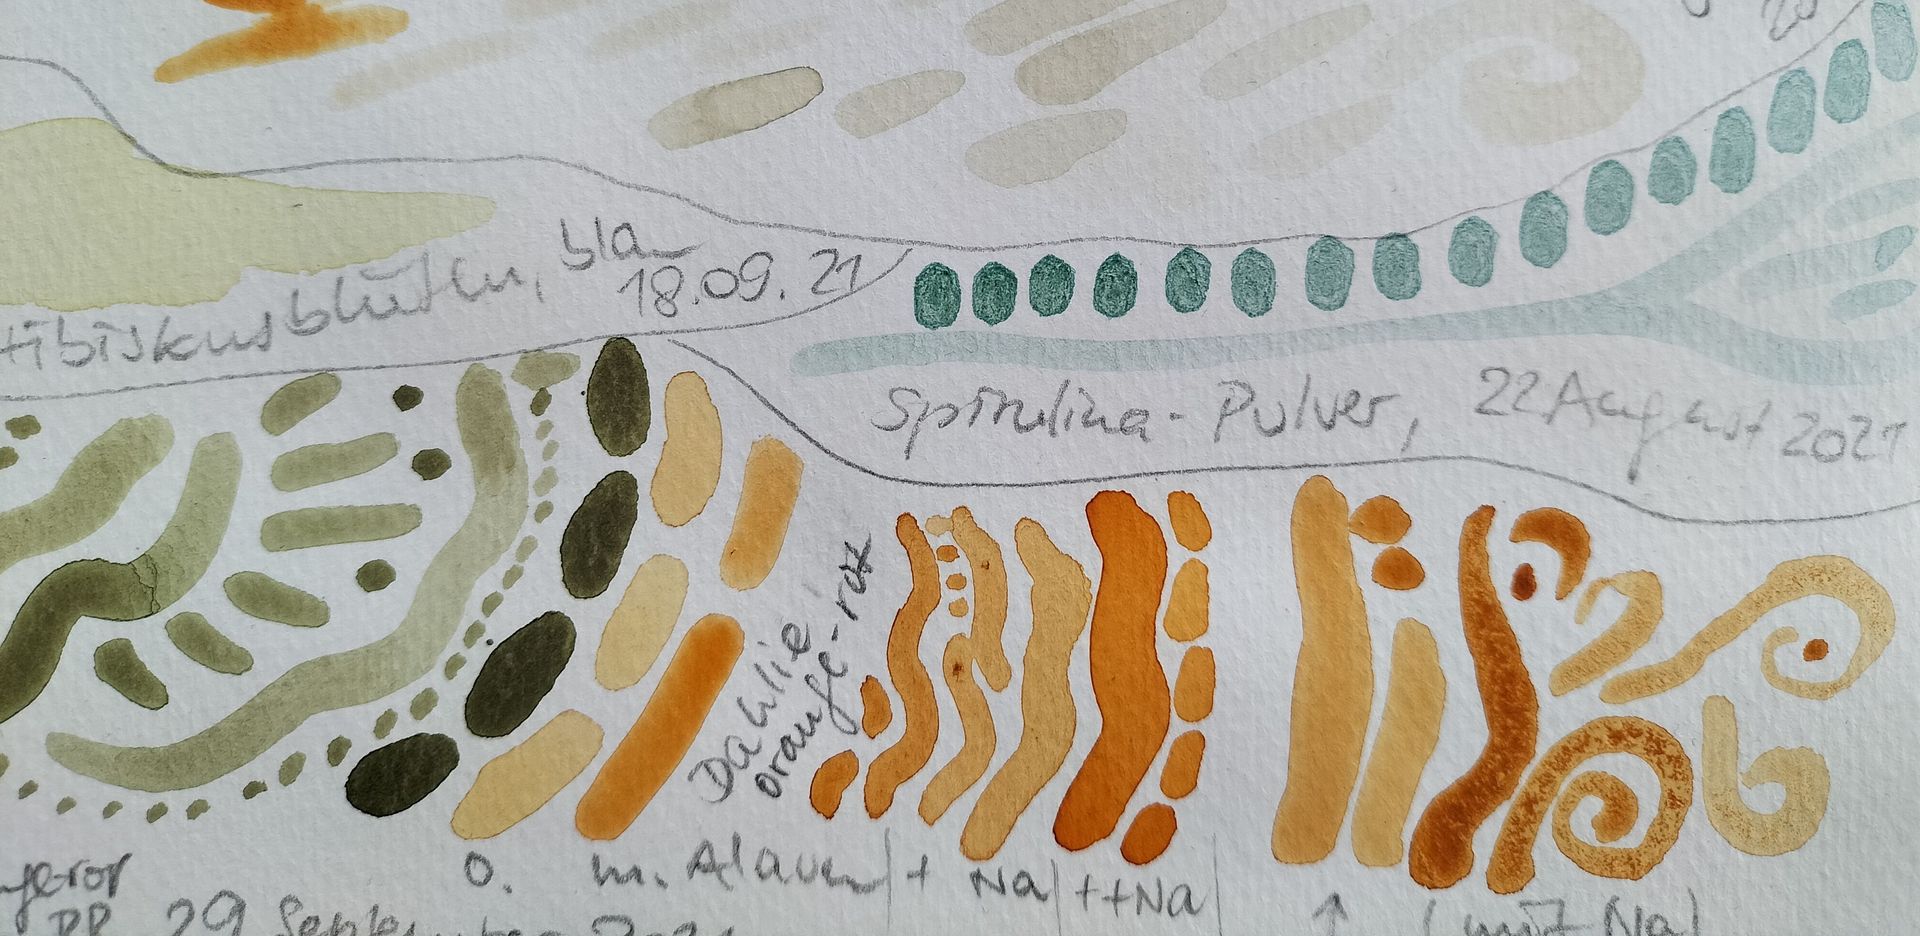 20
Hibiskusblüten, blau
18.09.21
Spirulina-Pulver, 22 August 2021
Dahlie
orange-rot
o. m. Alaun + Na ++Na
↑ (mit Na)
29 September 2021